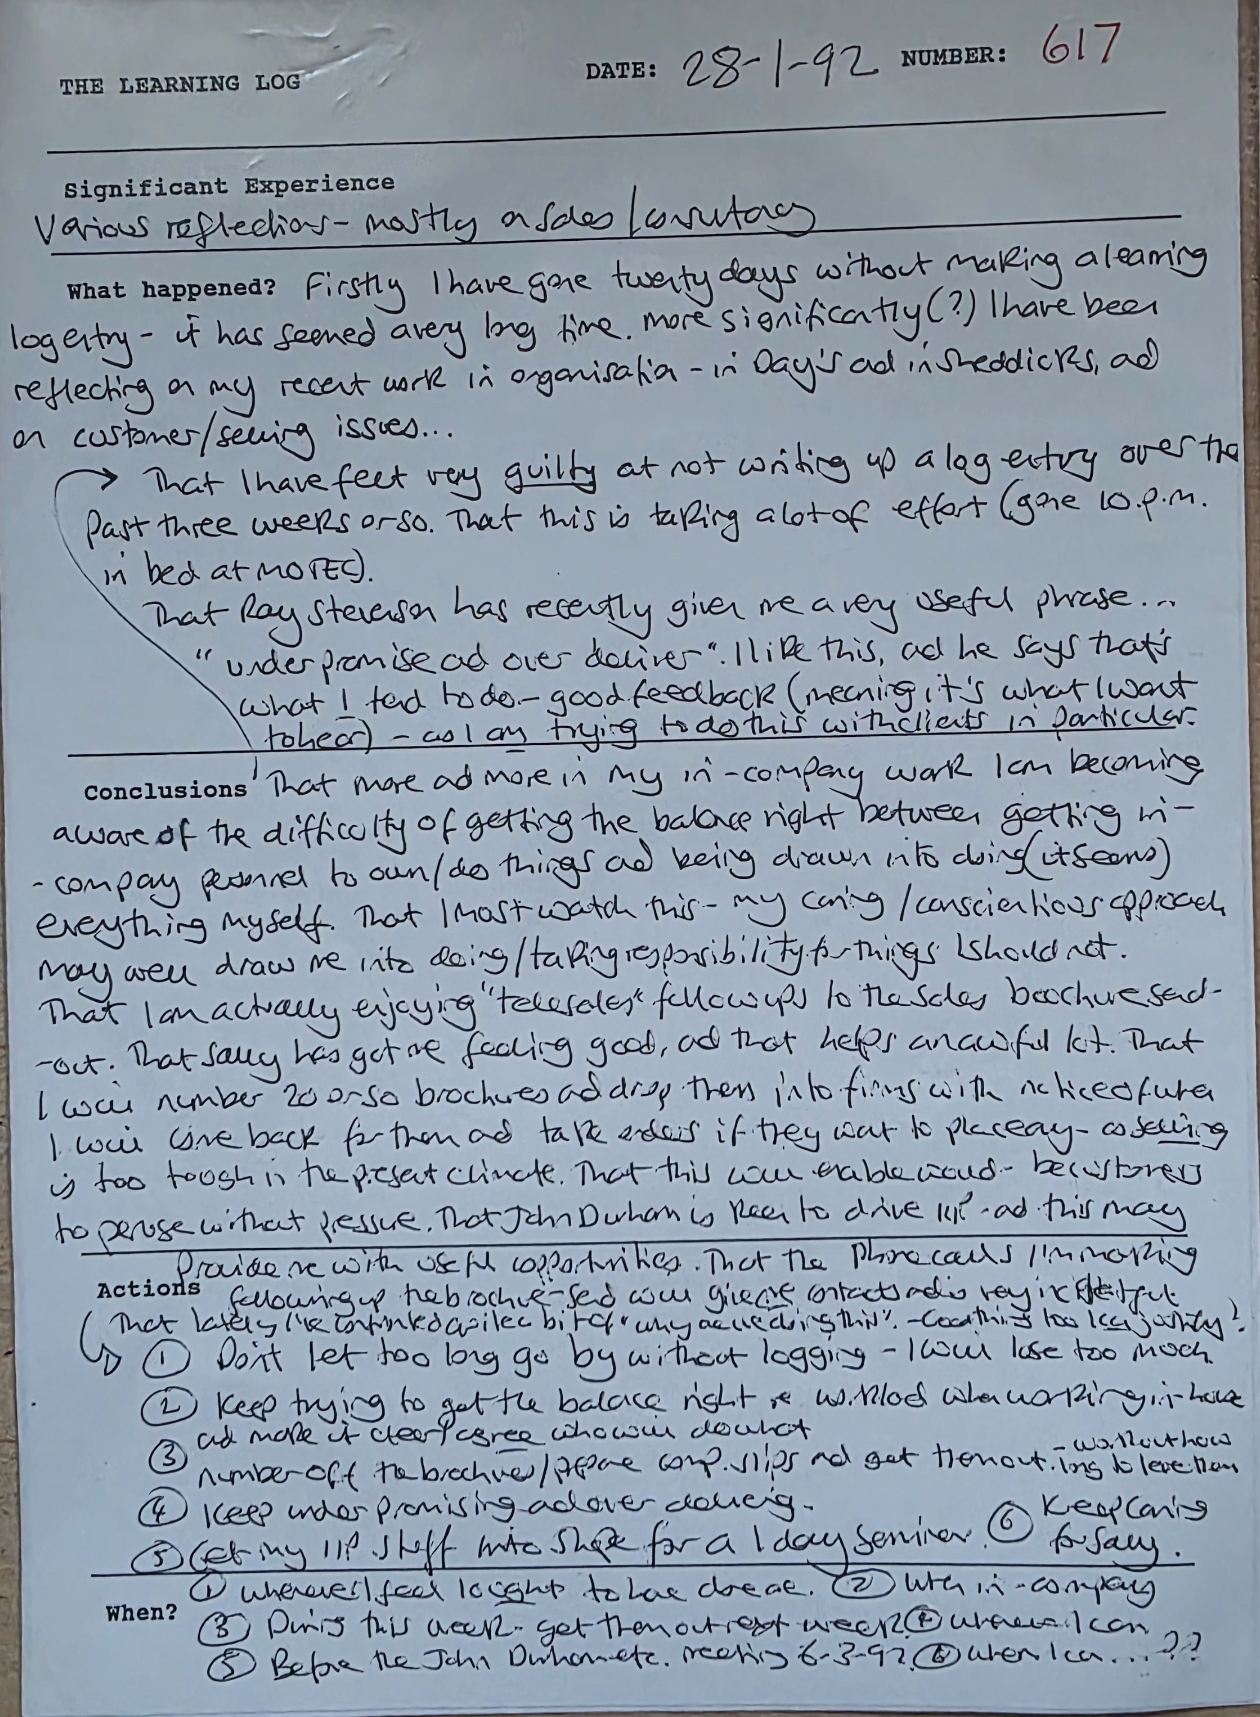 THE LEARNING LOG DATE: 28-1-92 NUMBER: 617
Significant Experience
Various reflections - mostly on sales/consultancy
What happened? Firstly I have gone twenty days without making a learning
log entry - it has seemed a very long time. More significantly(?) I have been
reflecting on my recent work in organisation - in Day's and in Sheddicks, and
on customer/selling issues...
→ That I have felt very guilty at not writing up a log entry over the
past three weeks or so. That this is taking a lot of effort (gone 10.p.m.
in bed at MOTEC).
That Ray Stevenson has recently given me a very useful phrase...
"under promise and over deliver". I like this, and he says that's
what I tend to do - good feedback (meaning it's what I want
to hear) - as I am trying to do this with clients in particular.
Conclusions That more and more in my in-company work I am becoming
aware of the difficulty of getting the balance right between getting in-
-company personnel to own/do things and being drawn into doing (it seems)
everything myself. That I must watch this - my caring/conscientious approach
may well draw me into doing/taking responsibility for things I should not.
That I am actually enjoying "telesales" follow ups to the sales brochure send-
-out. That Sally has got me feeling good, and that helps an awful lot. That
I will number 20 or so brochures and drop them into firms with notice of when
I will come back for them and take orders if they want to place any - as selling
is too tough in the present climate. That this will enable would-be customers
to peruse without pressure. That John Durham is keen to drive IIP - and this may
provide me with useful opportunities. That the phone calls I'm making
Actions following up the brochure-send will give me contacts and is very insightful
That lately I've a little bit of "why are we doing this". -
① Don't let too long go by without logging - I will lose too much.
② Keep trying to get the balance right re workload when working in-house
and make it clear/agree who will do what
③ number off the brochures/prepare comp. slips and get them out. - work out how long to leave them
④ Keep under promising and over delivering.
⑤ Get my IIP stuff into shape for a 1 day seminar. ⑥ Keep caring for Sally.
When? ① whenever I feel I ought to have done one. ② When in-company
③ During this week - get them out next week ④ whenever I can
⑤ Before the John Durham etc. meeting 6-3-92. ⑥ When I can...??